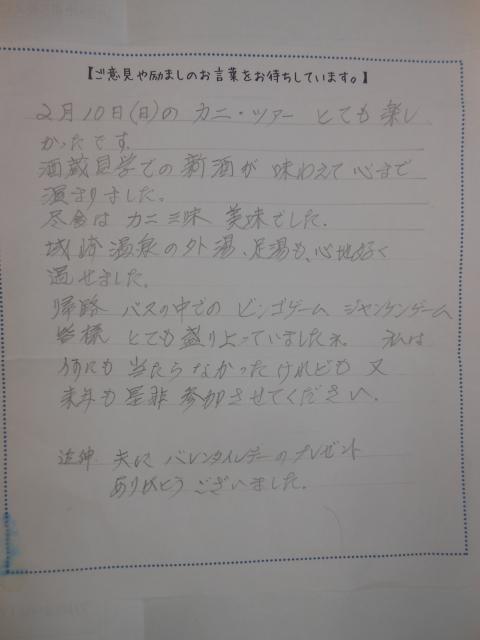 【ご意見や励ましのお言葉をお待ちしています。】
2月10日(日)の カニ・ツアー とても 楽し
かったです。
酒蔵見学での新酒が 味わえて心まで
温まりました。
昼食は カニ三昧 美味でした.
城崎温泉の外湯、足湯も、心地好く
過せました。
帰路 バスの中での ビンゴゲーム ジャンケンゲーム
皆様 とても盛り上っていましたネ. 私は
何にも 当たらなかったけれども 又
来年も是非 参加させてください.
追伸 夫に バレンタインデーのプレゼント
ありがとう ございました.